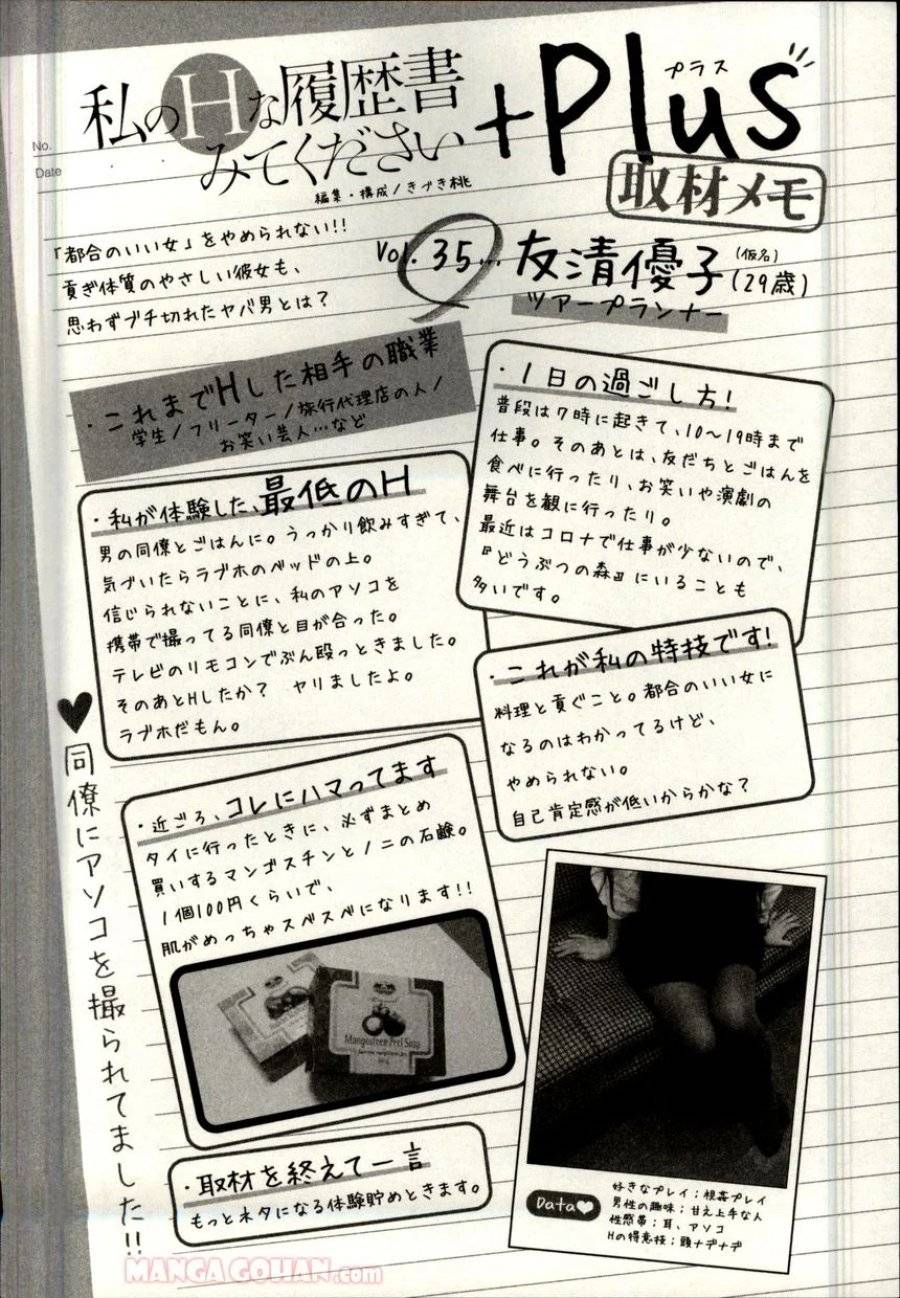 No.
Date
私のHな履歴書
みてください
+Plus
プラス
編集・構成/きづき桃
取材メモ
「都合のいい女」をやめられない!!
貢ぎ体質のやさしい彼女も、
思わずブチ切れたヤバ男とは?
Vol.35…
友清優子(仮名)(29歳)
ツアープランナー
・これまでHした相手の職業
学生/フリーター/旅行代理店の人/
お笑い芸人…など
・1日の過ごし方!
普段は7時に起きて、10〜19時まで
仕事。そのあとは、友だちとごはんを
食べに行ったり、お笑いや演劇の
舞台を観に行ったり。
最近はコロナで仕事が少ないので、
『どうぶつの森』にいることも
多いです。
・私が体験した、最低のH
男の同僚とごはんに。うっかり飲みすぎて、
気づいたらラブホのベッドの上。
信じられないことに、私のアソコを
携帯で撮ってる同僚と目が合った。
テレビのリモコンでぶん殴っときました。
そのあとHしたか? ヤリましたよ。
ラブホだもん。
・これが私の特技です!
料理と貢ぐこと。都合のいい女に
なるのはわかってるけど、
やめられない。
自己肯定感が低いからかな?
♥同僚にアソコを撮られてました!!
・近ごろ、コレにハマってます
タイに行ったときに、必ずまとめ
買いするマンゴスチンとノニの石鹸。
1個100円くらいで、
肌がめっちゃスベスベになります!!
Mangosteen Peel Soap
・取材を終えて一言
もっとネタになる体験貯めときます。
Data♥
好きなプレイ;視姦プレイ
男性の趣味;甘え上手な人
性感帯;耳、アソコ
Hの得意技;頭ナデナデ
MANGA GOHAN.com